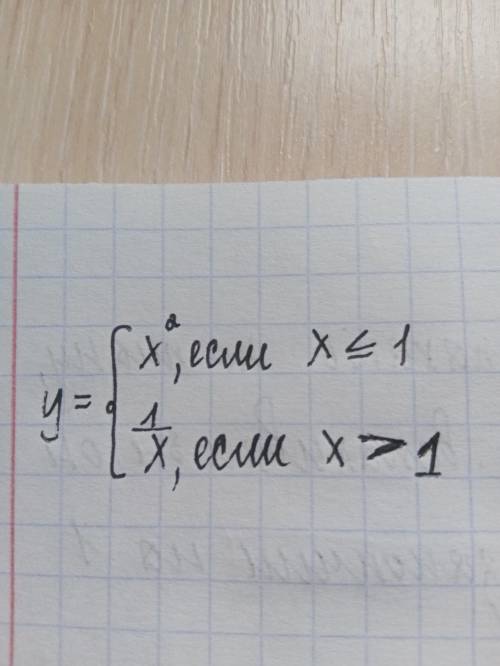 y = { x², если x ≤ 1
1/x, если x > 1